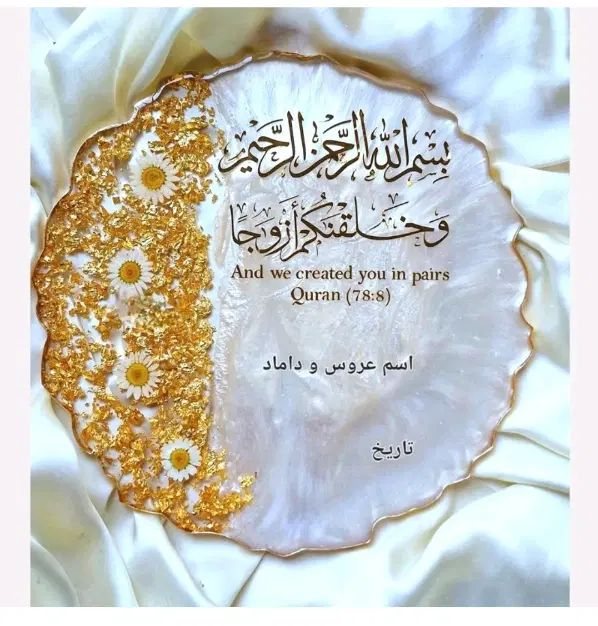 بِسْمِ اللهِ الرَّحْمٰنِ الرَّحِيْمِ
وَخَلَقْنَكُمْ أَزْوَجًا
And we created you in pairs
Quran (78:8)
اسم عروس و داماد
تاریخ